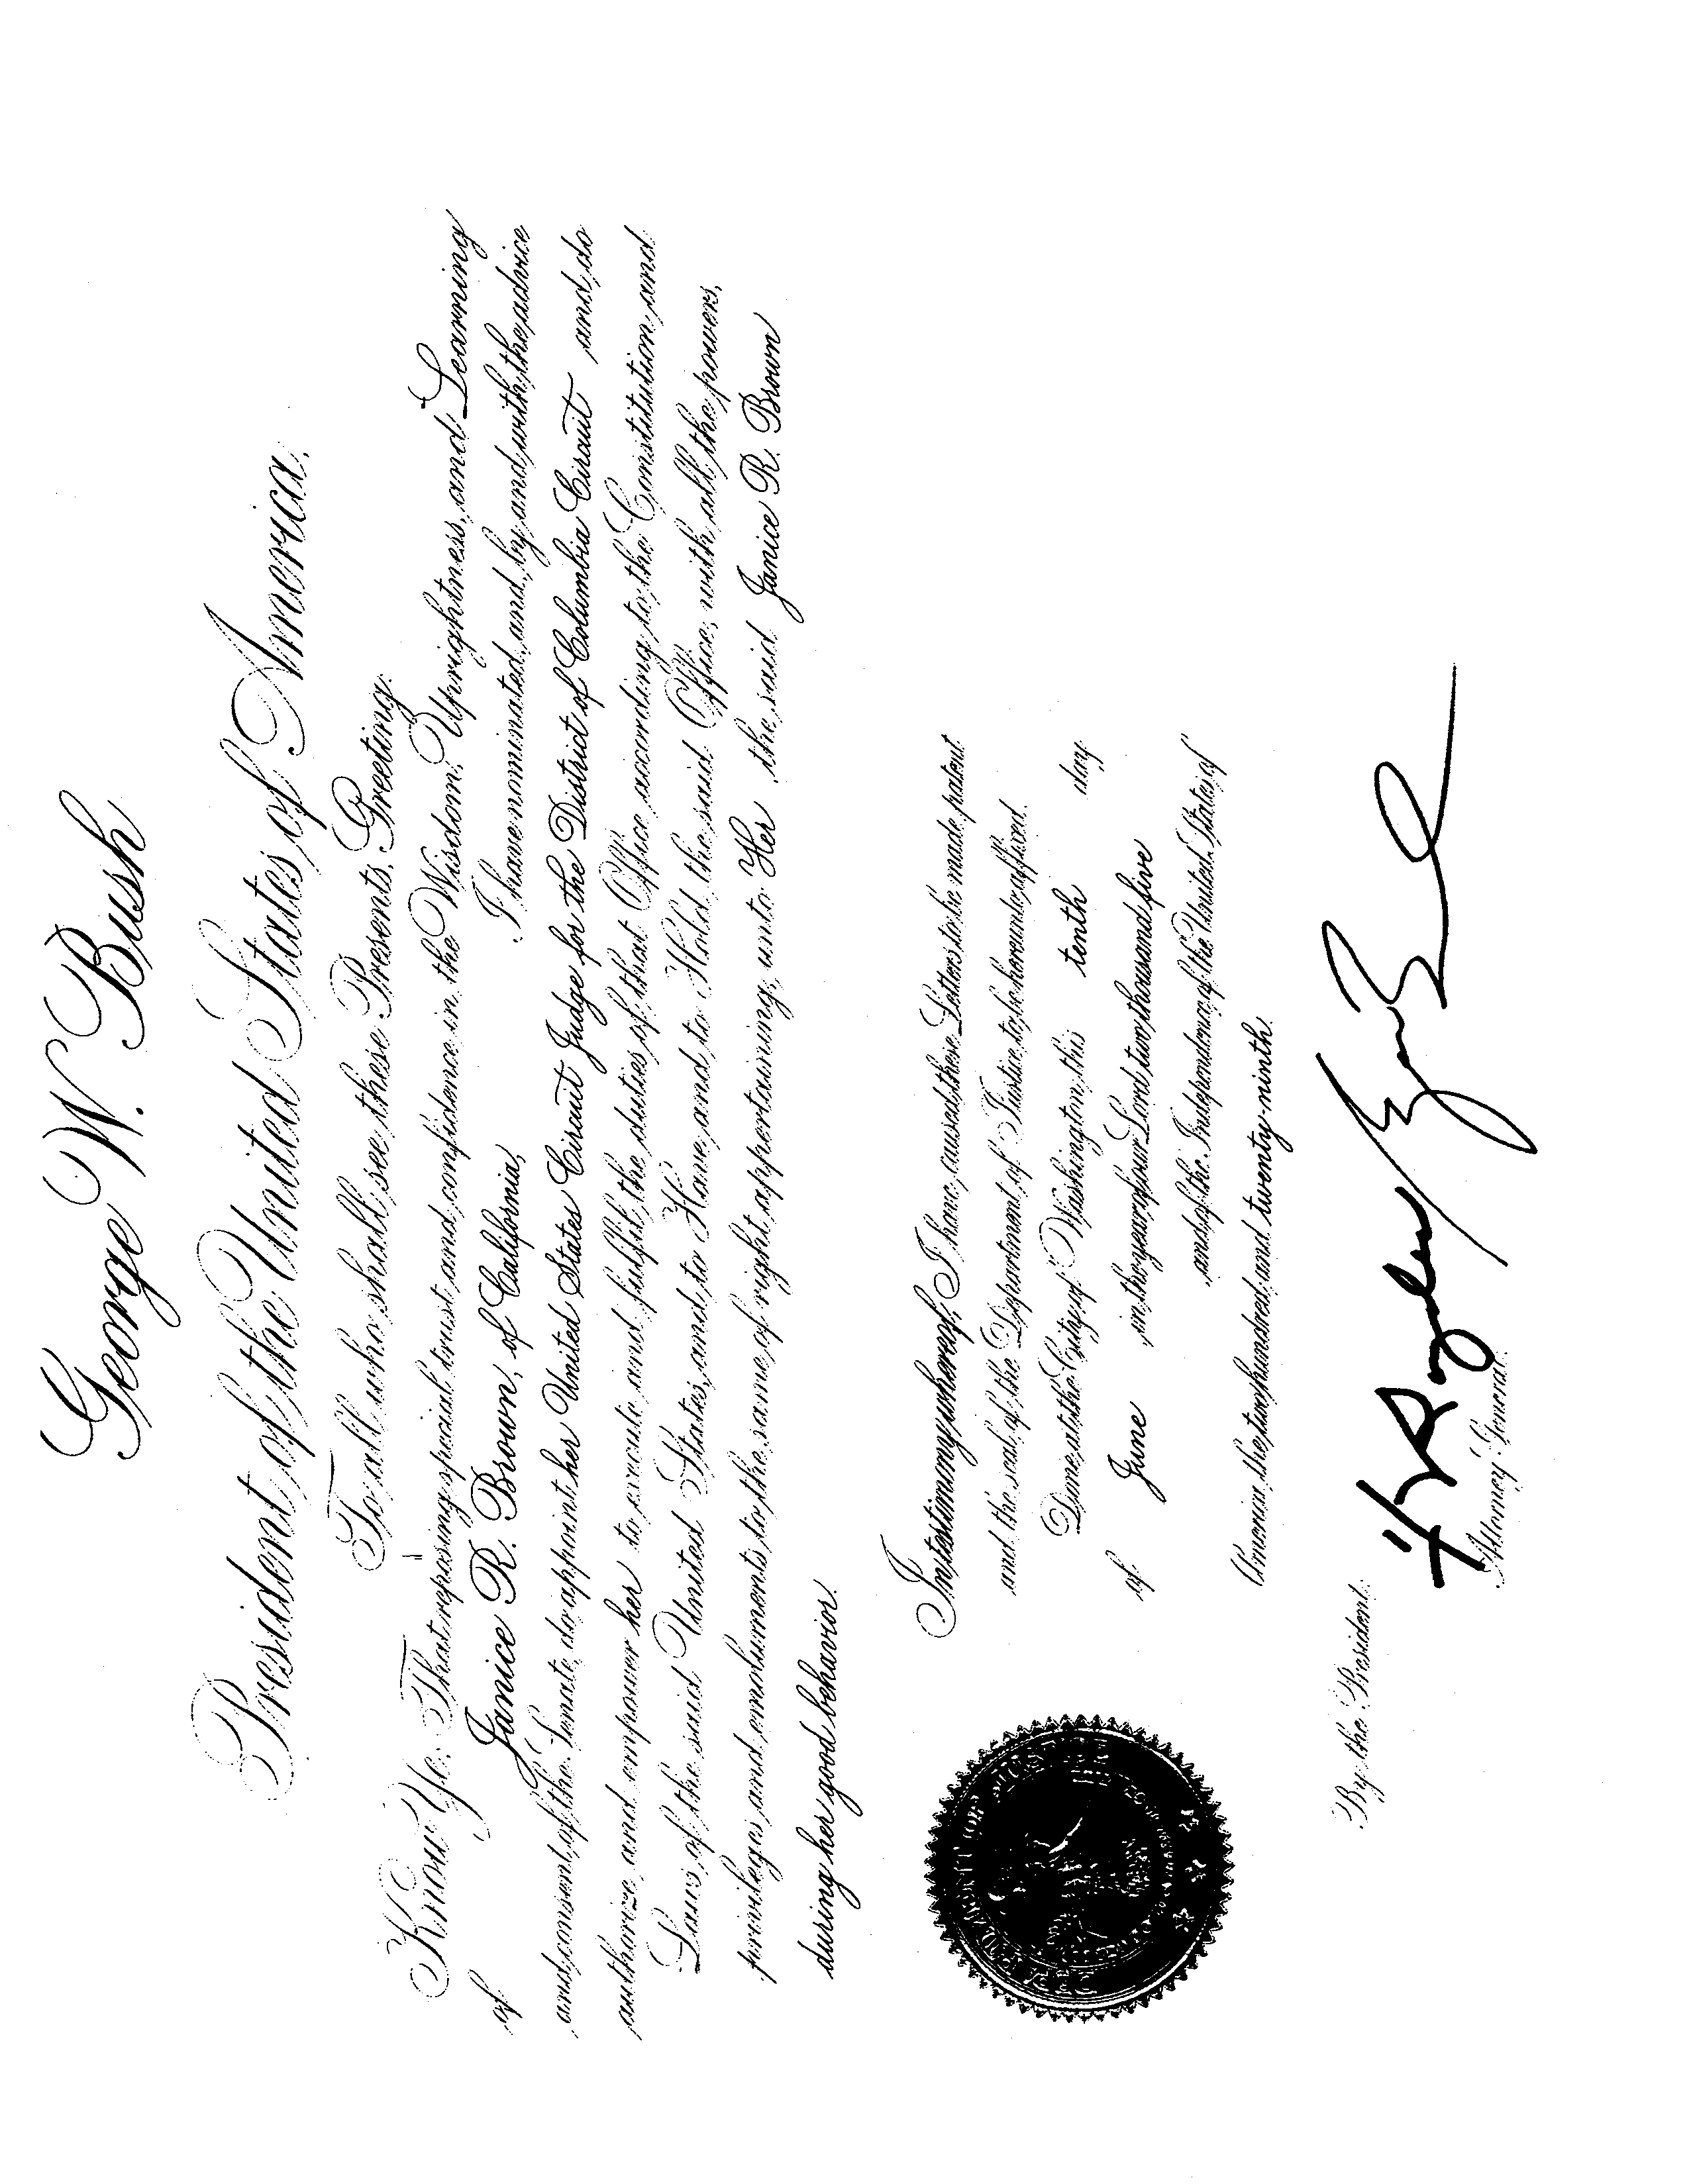 George W. Bush
President of the United States of America.
To all who shall see these Presents, Greeting:
Know Ye: That reposing special trust and confidence in the Wisdom, Uprightness, and Learning
of Janice R. Brown, of California, I have nominated, and, by and with the advice
and consent of the Senate, do appoint her United States Circuit Judge for the District of Columbia Circuit and do
authorize and empower her to execute and fulfil the duties of that Office according to the Constitution and
Laws of the said United States, and to Have and to Hold the said Office, with all the powers,
privileges and emoluments to the same of right appertaining, unto Her the said Janice R. Brown
during her good behavior.
In testimony whereof, I have caused these Letters to be made patent
and the seal of the Department of Justice to be hereunto affixed.
Done at the City of Washington this tenth day
of June in the year of our Lord two thousand five
and of the Independence of the United States of
America the two hundred and twenty-ninth.
DEPARTMENT OF JUSTICE
By the President:
Attorney General.